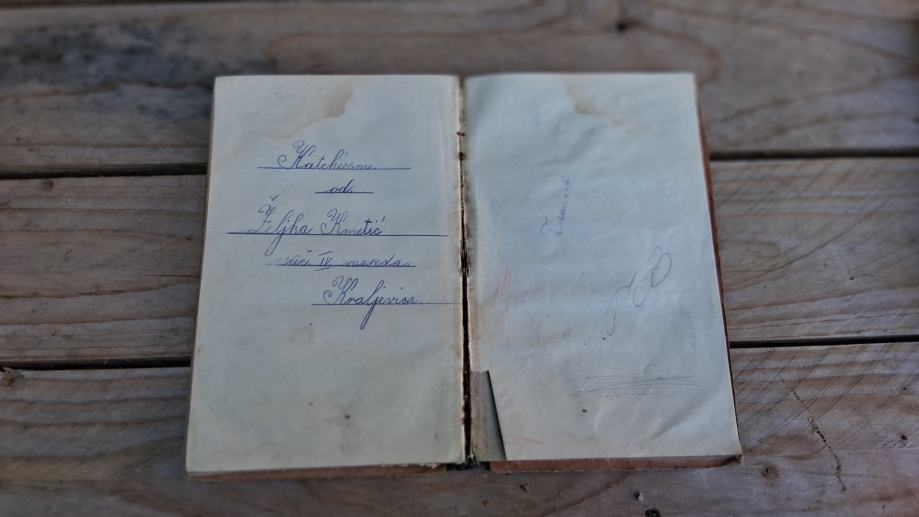 Katekizam.
od.
Željka Kmetić
uče. IV. razreda.
Kraljevica.